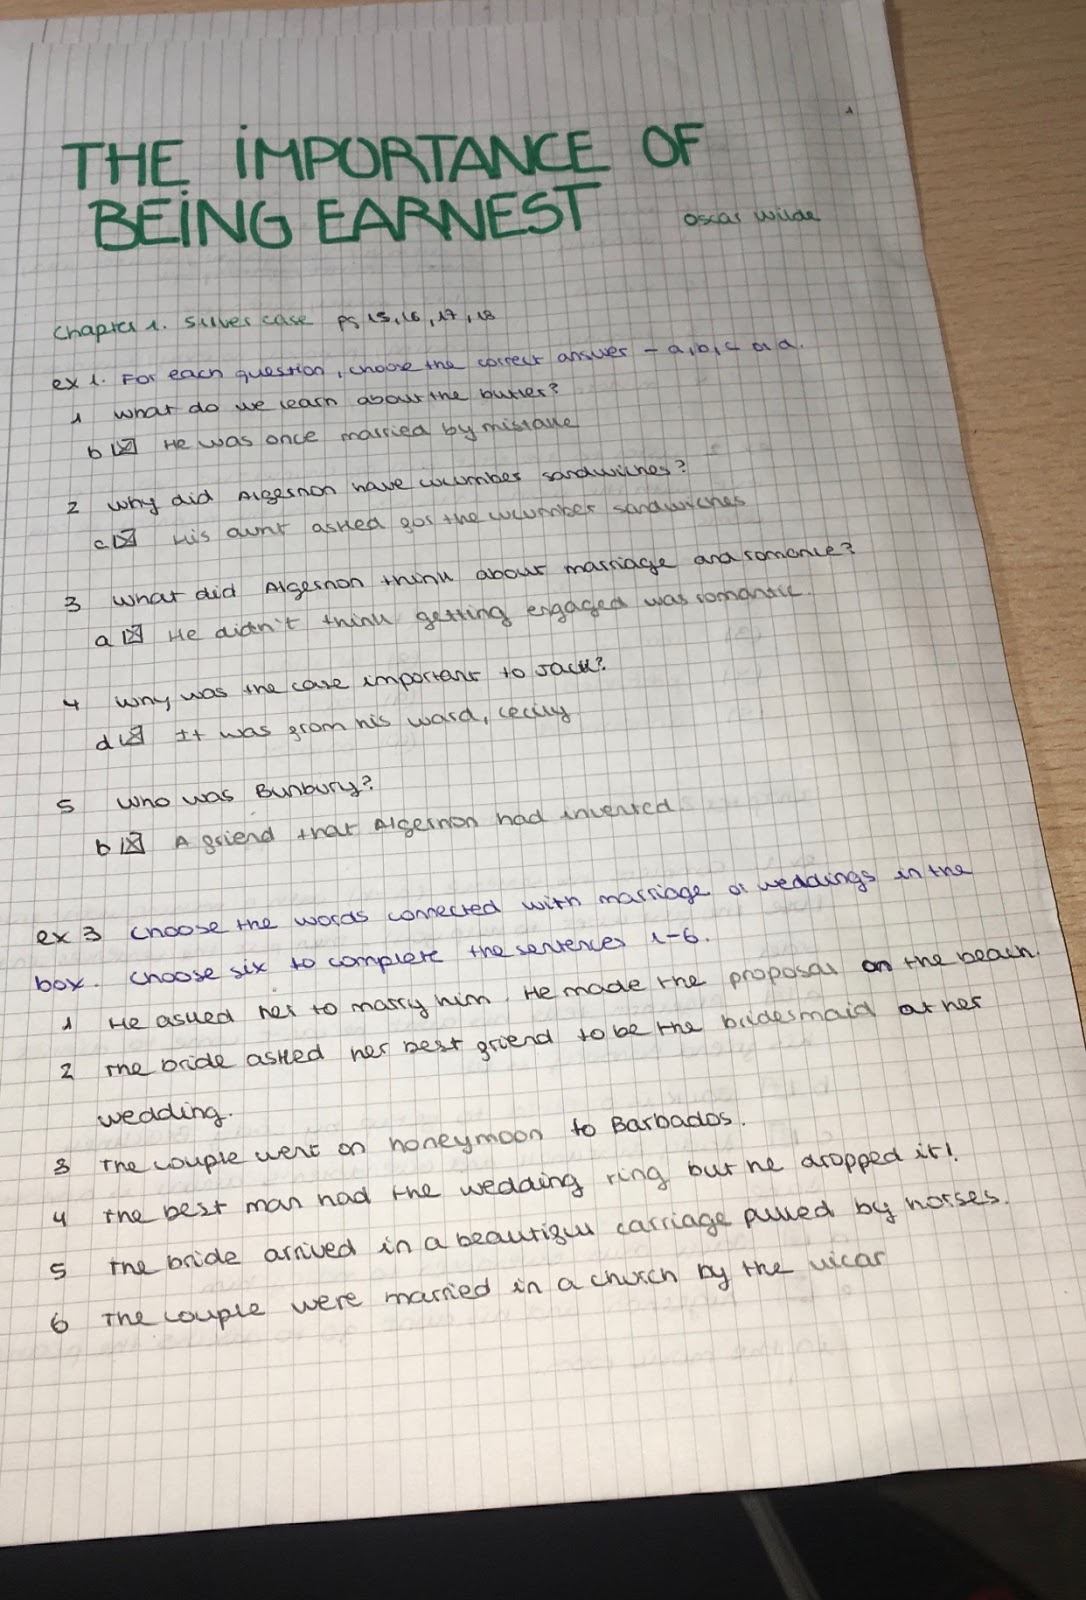 1
THE IMPORTANCE OF
BEING EARNEST oscar wilde
Chapter 1. Silver case pg 15, 16, 17, 18
ex 1. For each question, choose the correct answer - a, b, c or d.
1 What do we learn about the butler?
b ☒ He was once married by mistake
2 Why did Algernon have cucumber sandwiches?
c ☒ His aunt asked for the cucumber sandwiches
3 What did Algernon think about marriage and romance?
a ☒ He didn't think getting engaged was romantic.
4 Why was the case important to Jack?
d ☒ It was from his ward, Cecily
5 Who was Bunbury?
b ☒ A friend that Algernon had invented
ex 3 Choose the words connected with marriage or weddings in the
box. Choose six to complete the sentences 1-6.
1 He asked her to marry him. He made the proposal on the beach.
2 The bride asked her best friend to be the bridesmaid at her
wedding.
3 The couple went on honeymoon to Barbados.
4 The best man had the wedding ring but he dropped it!.
5 The bride arrived in a beautiful carriage pulled by horses.
6 The couple were married in a church by the vicar